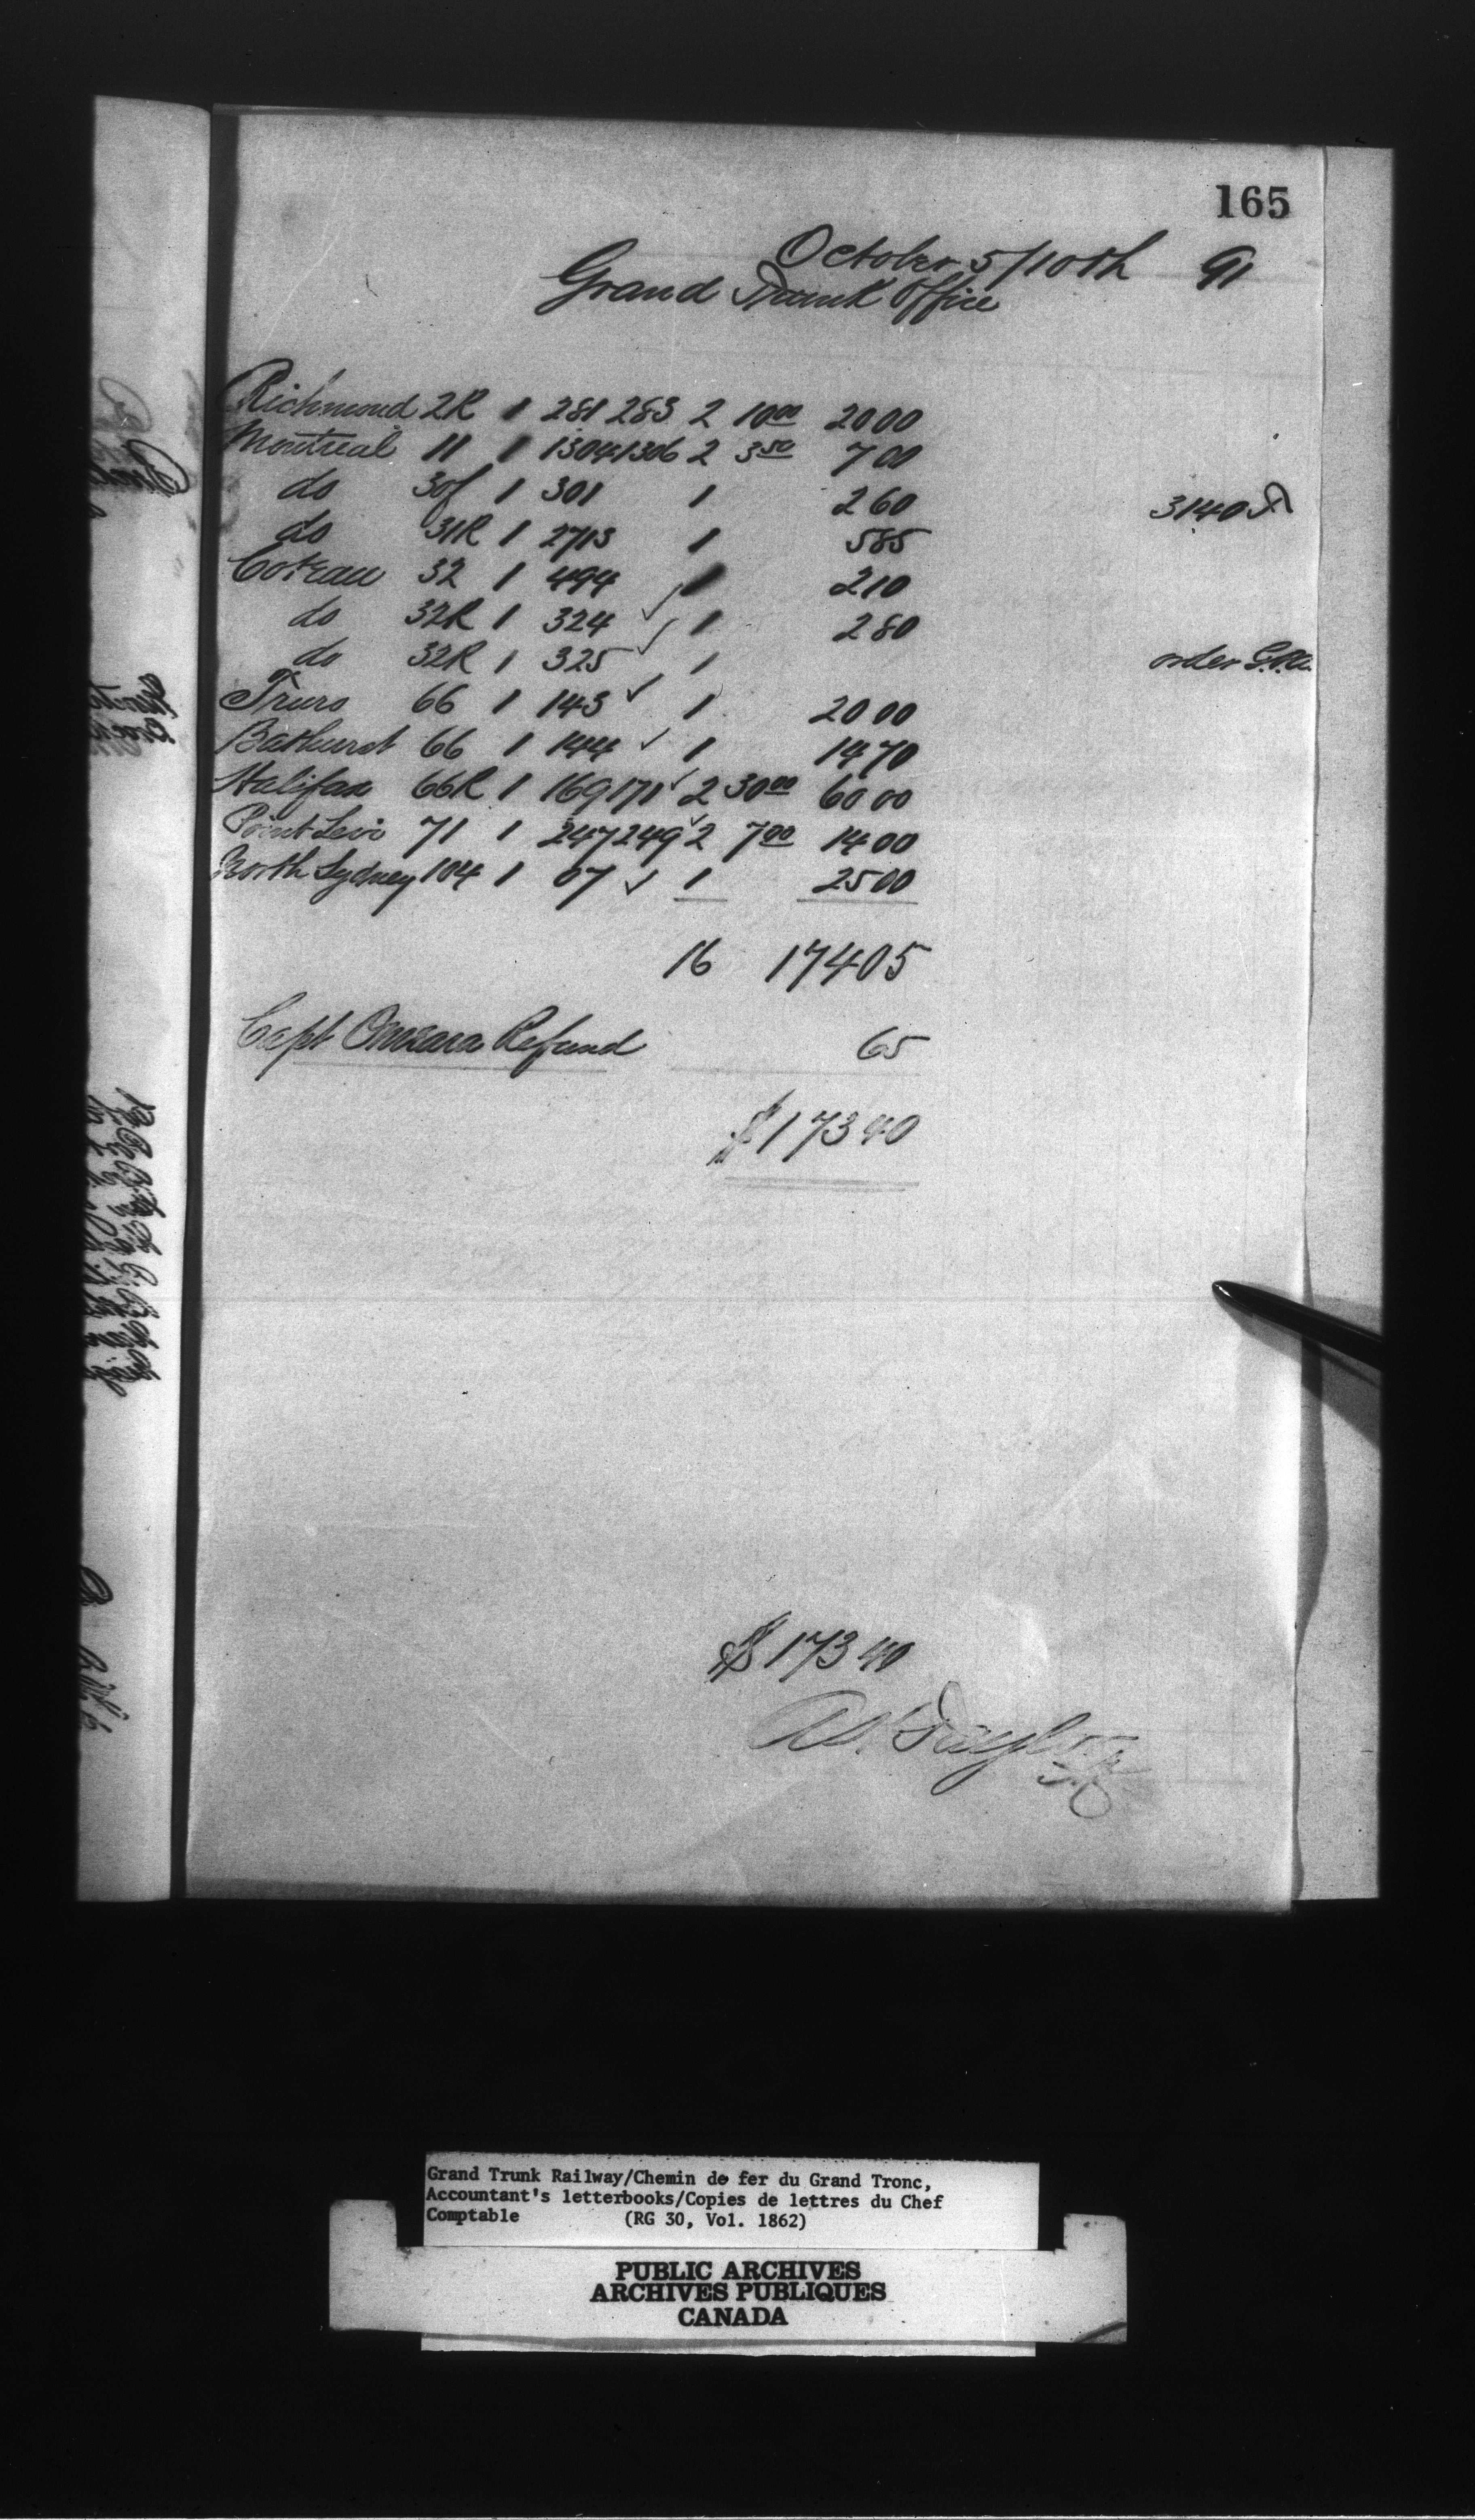 165
October 5/10th 91
Grand Trunk Office
Richmond 2R 1 281 283 2 10 00 20 00
Montreal 11 1 1304 1306 2 3 50 7 00
do 30f 1 301 1 2 60 3140
do 31R 1 2713 1 5 85
Coteau 32 1 494 ✓ 1 2 10
do 32R 1 324 ✓ 1 2 80
do 32R 1 325 ✓ 1 order G.P.A.
Truro 66 1 143 ✓ 1 20 00
Bathurst 66 1 144 ✓ 1 14 70
Halifax 66R 1 169 171 ✓ 2 30 00 60 00
Point Levi 71 1 247 249 ✓ 2 7 00 14 00
North Sydney 104 1 07 ✓ 1 25 00
16 174 05
Capt Refund 65
$173 40
$173 40
Taylor
Grand Trunk Railway/Chemin de fer du Grand Tronc,
Accountant's letterbooks/Copies de lettres du Chef
Comptable (RG 30, Vol. 1862)
PUBLIC ARCHIVES
ARCHIVES PUBLIQUES
CANADA